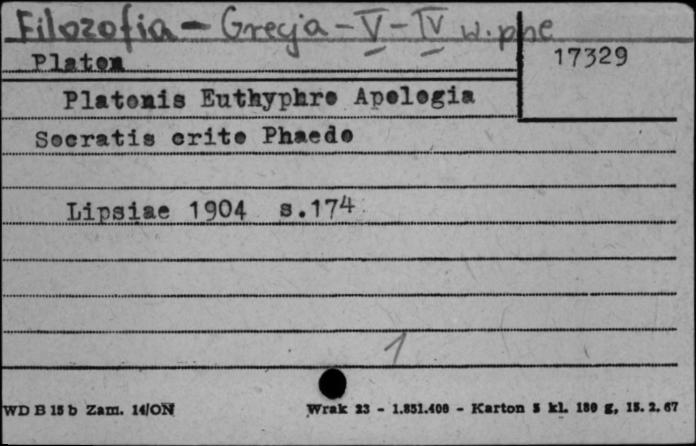 Filozofia - Grecja - V - IV w. pne
Platon
17329
Platonis Euthyphro Apologia
Socratis crito Phaedo
Lipsiae 1904 s.174
1
WD B 15 b Zam. 14/ON Wrak 23 - 1.851.400 - Karton 5 kl. 180 g, 15. 2. 67